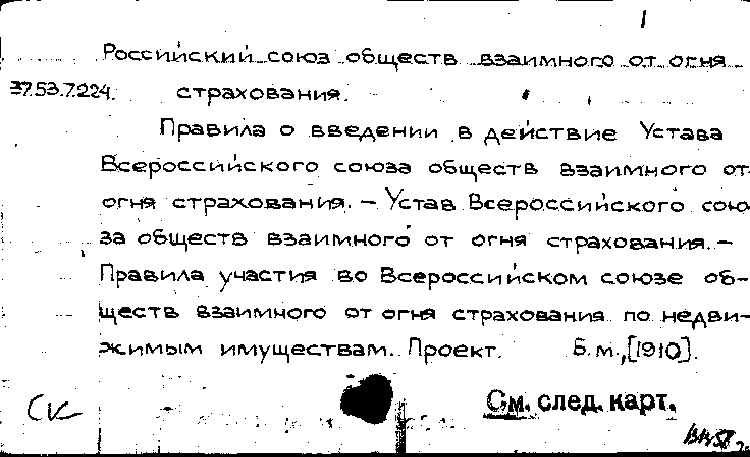 1
Российский союз обществ взаимного от огня
37.53.7.224. страхования.
Правила о введении в действие Устава
Всероссийского союза обществ взаимного от
огня страхования. – Устав Всероссийского сою-
за обществ взаимного от огня страхования. –
Правила участия во Всероссийском союзе об-
ществ взаимного от огня страхования по недви-
жимым имуществам. Проект. Б.м., [1910].
См. след. карт.
СК